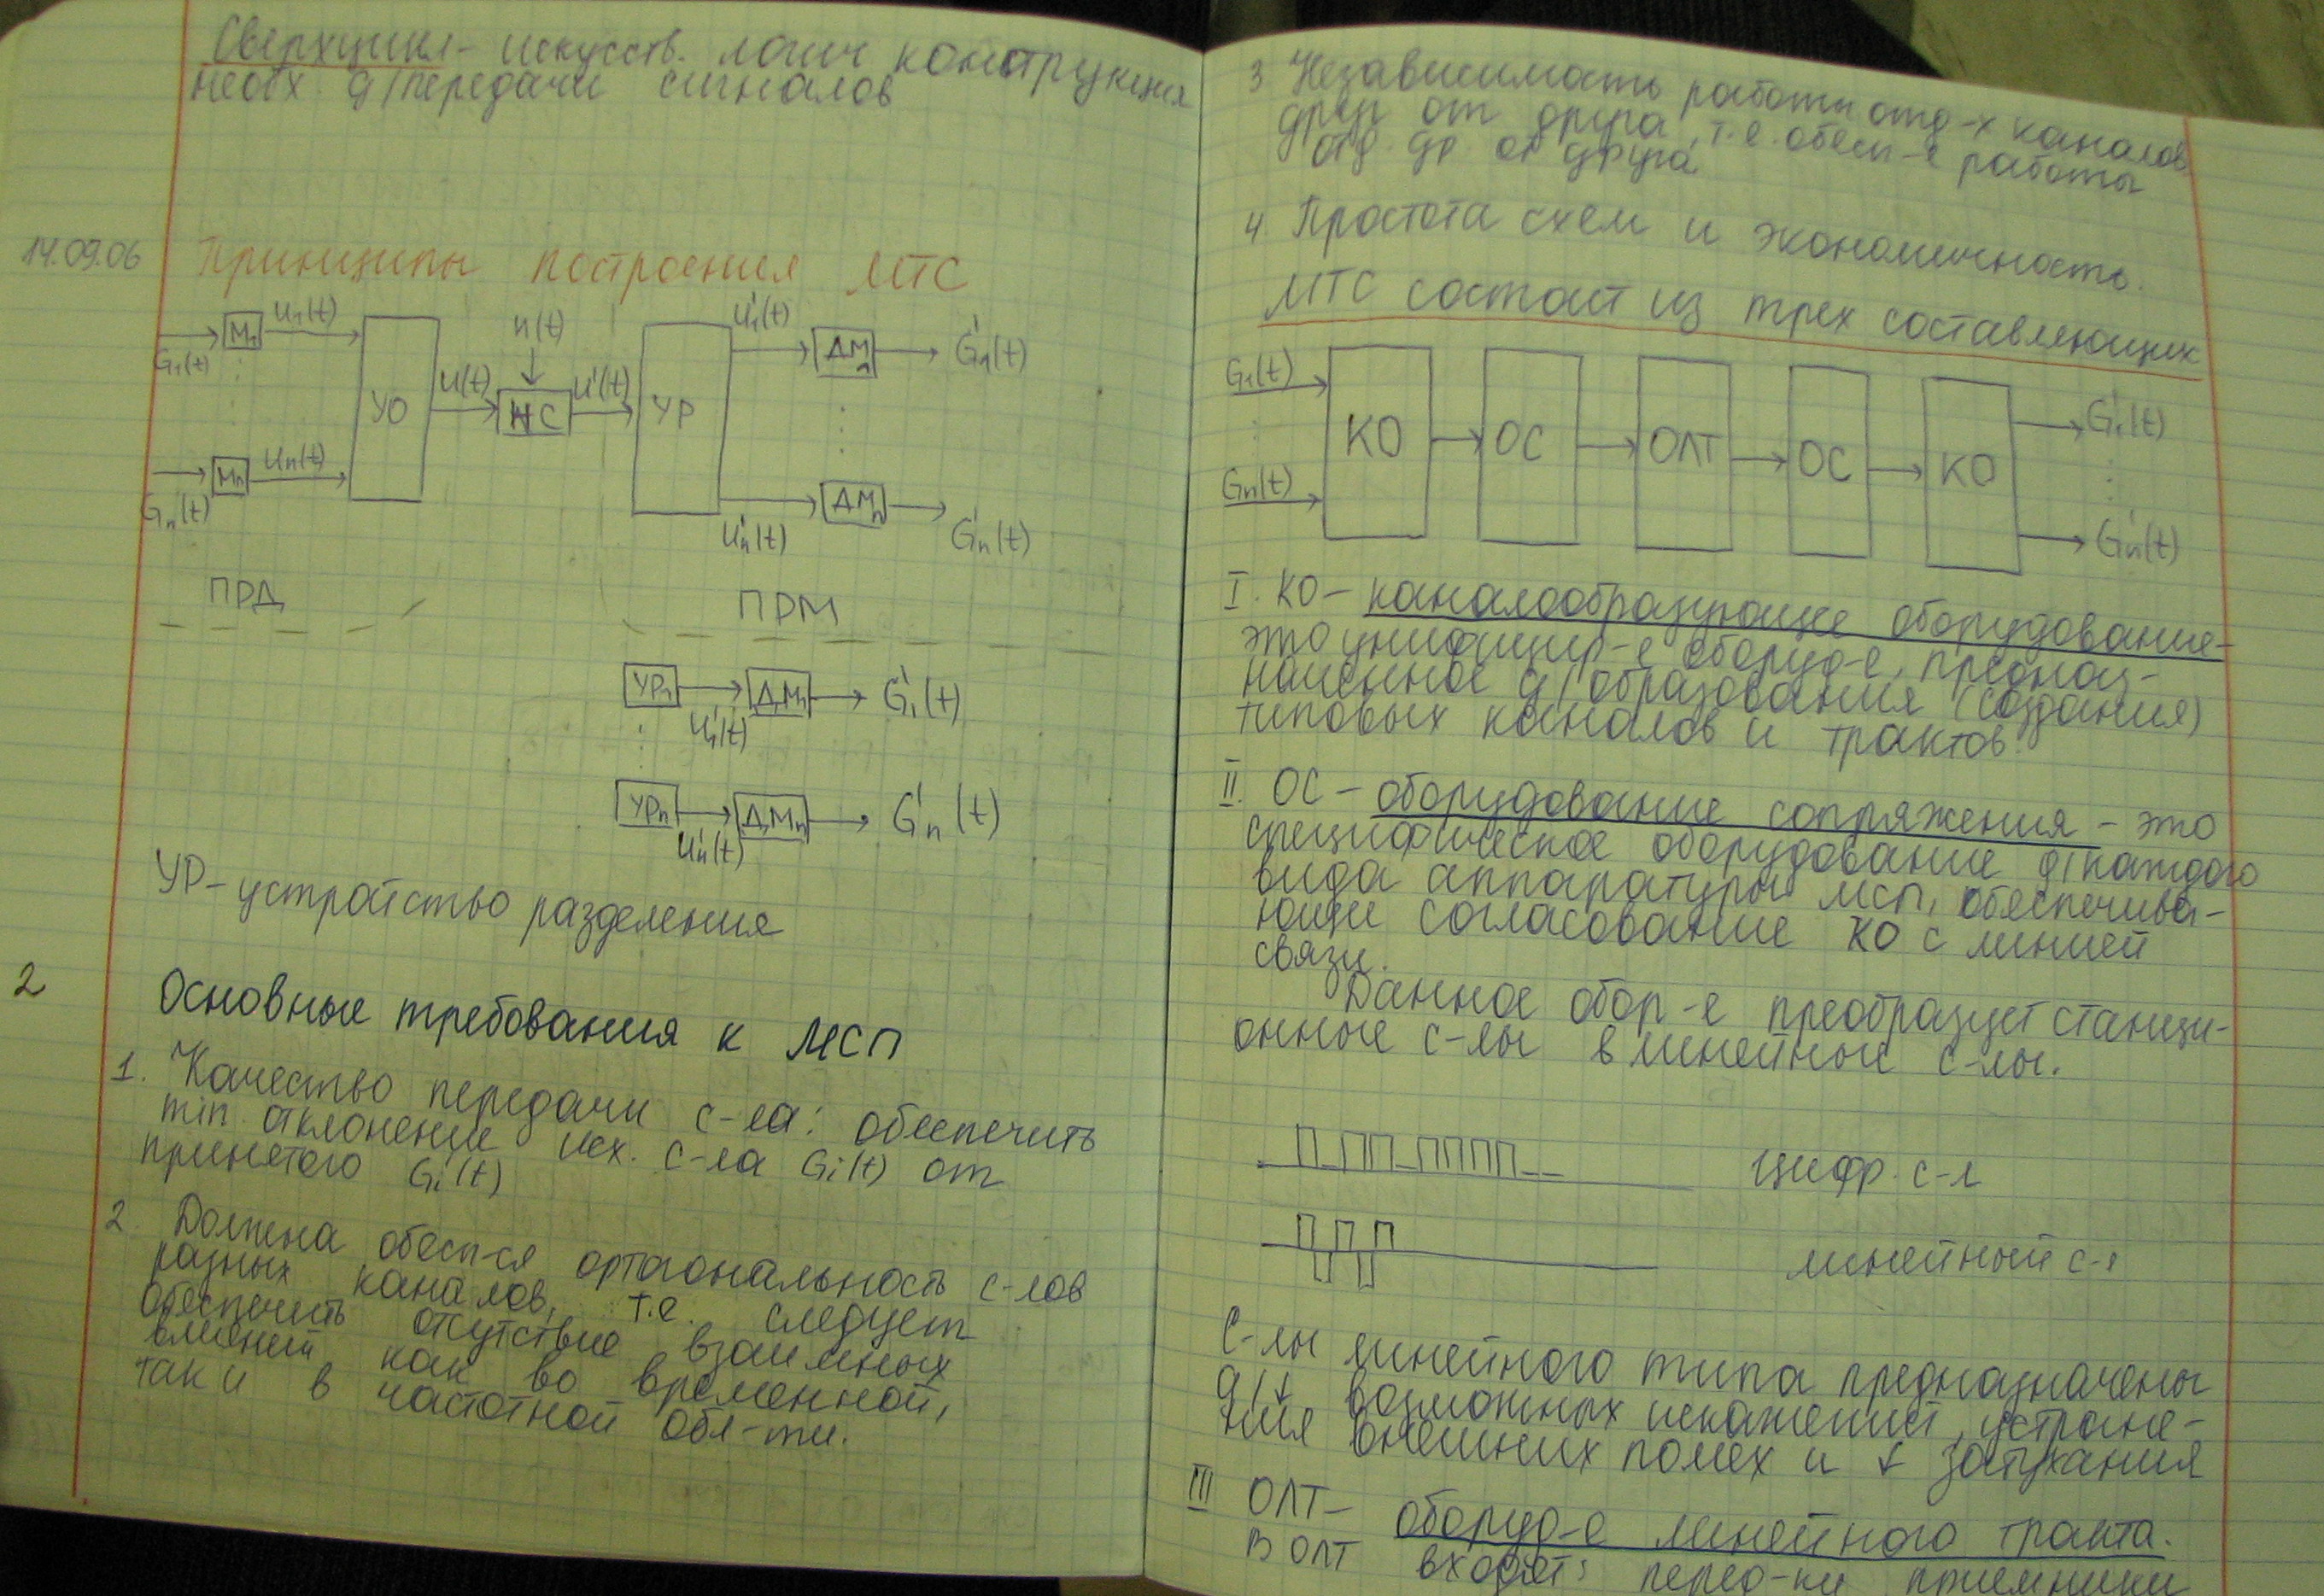 Сверхцикл - искусств. логич конструкция
необх д/передачи сигналов
14.09.06 Принципы построения МТС
G₁(t) М₁ U₁(t) УО U(t) n(t) НС U'(t) УР U₁'(t) ДМ₁ G₁'(t)
Gₙ(t) Мₙ Uₙ(t) Uₙ'(t) ДМₙ Gₙ'(t)
ПРД ПРМ
УР₁ U₁'(t) ДМ₁ G₁'(t)
УРₙ Uₙ'(t) ДМₙ Gₙ'(t)
УР - устройство разделения
2
Основные требования к МСП
1. Качество передачи с-ла: обеспечить
min отклонение исх. с-ла Gᵢ(t) от
принятого Gᵢ'(t)
2. Должна обесп-ся ортогональность с-лов
разных каналов, т.е. следует
обеспечить отсутствие взаимных
влияний как во временной,
так и в частотной обл-ти.
3 Независимость работы отд-х каналов
друг от друга, т.е. обесп-е работы
отд. др. от друга
4. Простота схем и экономичность.
МТС состоит из трех составляющих
G₁(t) Gₙ(t) КО ОС ОЛТ ОС КО G₁'(t) Gₙ'(t)
I. КО - каналообразующее оборудование-
это унифицир-е оборуд-е, предназ-
наченное д/образования (создания)
типовых каналов и трактов.
II. ОС - оборудование сопряжения - это
специфическое оборудование д/каждого
вида аппаратуры МСП, обеспечива-
ющи согласование КО с линией
связи.
Данное обор-е преобразует станци-
онные с-лы в линейные с-лы.
цифр. с-л
линейный с-л
С-лы линейного типа предназначены
д/↓ возможных искажений, устране-
ния внешних помех и ↓ затухания
III ОЛТ - оборуд-е линейного тракта.
В ОЛТ входят: перед-ки приемники